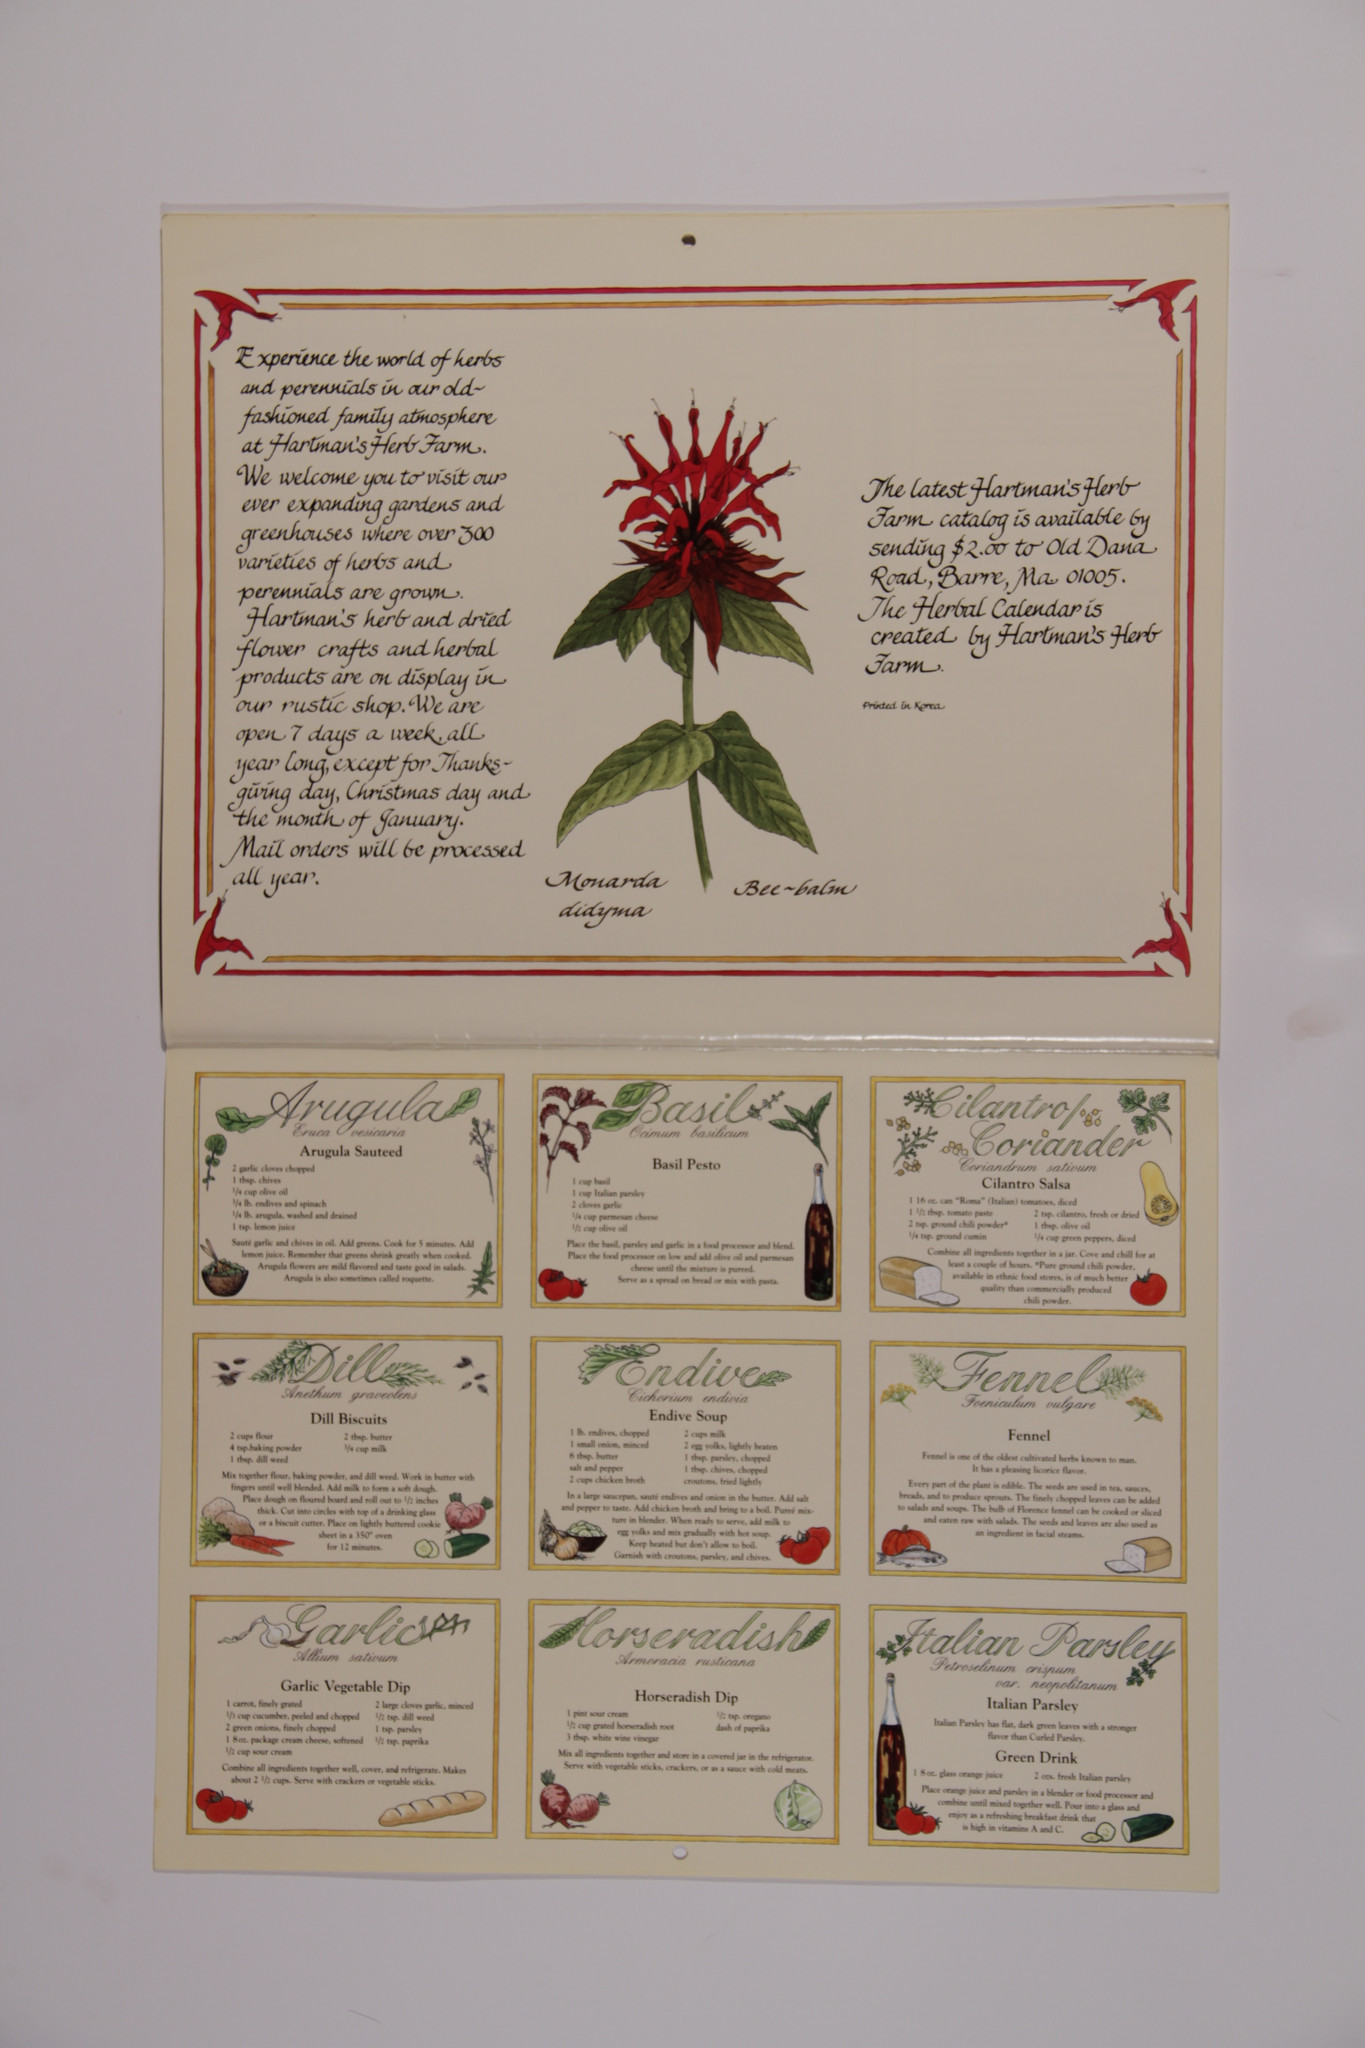 Experience the world of herbs
and perennials in our old~
fashioned family atmosphere
at Hartman's Herb Farm.
We welcome you to visit our
ever expanding gardens and
greenhouses where over 300
varieties of herbs and
perennials are grown.
Hartman's herb and dried
flower crafts and herbal
products are on display in
our rustic shop. We are
open 7 days a week, all
year long, except for Thanks~
giving day, Christmas day and
the month of January.
Mail orders will be processed
all year.
Monarda
didyma
Bee~balm
The latest Hartman's Herb
Farm catalog is available by
sending $2.00 to Old Dana
Road, Barre, Ma 01005.
The Herbal Calendar is
created by Hartman's Herb
Farm.
Printed in Korea
Arugula
Eruca vesicaria
Arugula Sauteed
2 garlic cloves chopped
1 tbsp. chives
1/4 cup olive oil
1/4 lb. endives and spinach
1/4 lb. arugula, washed and drained
1 tsp. lemon juice
Sauté garlic and chives in oil. Add greens. Cook for 5 minutes. Add
lemon juice. Remember that greens shrink greatly when cooked.
Arugula flowers are mild flavored and taste good in salads.
Arugula is also sometimes called roquette.
Basil
Ocimum basilicum
Basil Pesto
1 cup basil
1 cup Italian parsley
2 cloves garlic
1/4 cup parmesan cheese
1/2 cup olive oil
Place the basil, parsley and garlic in a food processor and blend.
Place the food processor on low and add olive oil and parmesan
cheese until the mixture is pureed.
Serve as a spread on bread or mix with pasta.
Cilantro/
Coriander
Coriandrum sativum
Cilantro Salsa
1 16 oz. can "Roma" (Italian) tomatoes, diced
1 1/2 tbsp. tomato paste
2 tsp. ground chili powder*
1/4 tsp. ground cumin
2 tsp. cilantro, fresh or dried
1 tbsp. olive oil
1/4 cup green peppers, diced
Combine all ingredients together in a jar. Cove and chill for at
least a couple of hours. *Pure ground chili powder,
available in ethnic food stores, is of much better
quality than commercially produced
chili powder.
Dill
Anethum graveolens
Dill Biscuits
2 cups flour
4 tsp.baking powder
1 tbsp. dill weed
2 tbsp. butter
3/4 cup milk
Mix together flour, baking powder, and dill weed. Work in butter with
fingers until well blended. Add milk to form a soft dough.
Place dough on floured board and roll out to 1/2 inches
thick. Cut into circles with top of a drinking glass
or a biscuit cutter. Place on lightly buttered cookie
sheet in a 350° oven
for 12 minutes.
Endive
Cichorium endivia
Endive Soup
1 lb. endives, chopped
1 small onion, minced
6 tbsp. butter
salt and pepper
2 cups chicken broth
2 cups milk
2 egg yolks, lightly beaten
1 tbsp. parsley, chopped
1 tbsp. chives, chopped
croutons, fried lightly
In a large saucepan, sauté endives and onion in the butter. Add salt
and pepper to taste. Add chicken broth and bring to a boil. Pureé mix-
ture in blender. When ready to serve, add milk to
egg yolks and mix gradually with hot soup.
Keep heated but don't allow to boil.
Garnish with croutons, parsley, and chives.
Fennel
Foeniculum vulgare
Fennel
Fennel is one of the oldest cultivated herbs known to man.
It has a pleasing licorice flavor.
Every part of the plant is edible. The seeds are used in tea, sauces,
breads, and to produce sprouts. The finely chopped leaves can be added
to salads and soups. The bulb of Florence fennel can be cooked or sliced
and eaten raw with salads. The seeds and leaves are also used as
an ingredient in facial steams.
Garlic
Allium sativum
Garlic Vegetable Dip
1 carrot, finely grated
1/3 cup cucumber, peeled and chopped
2 green onions, finely chopped
1 8oz. package cream cheese, softened
1/2 cup sour cream
2 large cloves garlic, minced
1/2 tsp. dill weed
1 tsp. parsley
1/2 tsp. paprika
Combine all ingredients together well, cover, and refrigerate. Makes
about 2 1/2 cups. Serve with crackers or vegetable sticks.
Horseradish
Armoracia rusticana
Horseradish Dip
1 pint sour cream
1/2 cup grated horseradish root
3 tbsp. white wine vinegar
1/2 tsp. oregano
dash of paprika
Mix all ingredients together and store in a covered jar in the refrigerator.
Serve with vegetable sticks, crackers, or as a sauce with cold meats.
Italian Parsley
Petroselinum crispum
var. neopolitanum
Italian Parsley
Italian Parsley has flat, dark green leaves with a stronger
flavor than Curled Parsley.
Green Drink
1 8oz. glass orange juice
2 ozs. fresh Italian parsley
Place orange juice and parsley in a blender or food processor and
combine until mixed together well. Pour into a glass and
enjoy as a refreshing breakfast drink that
is high in vitamins A and C.